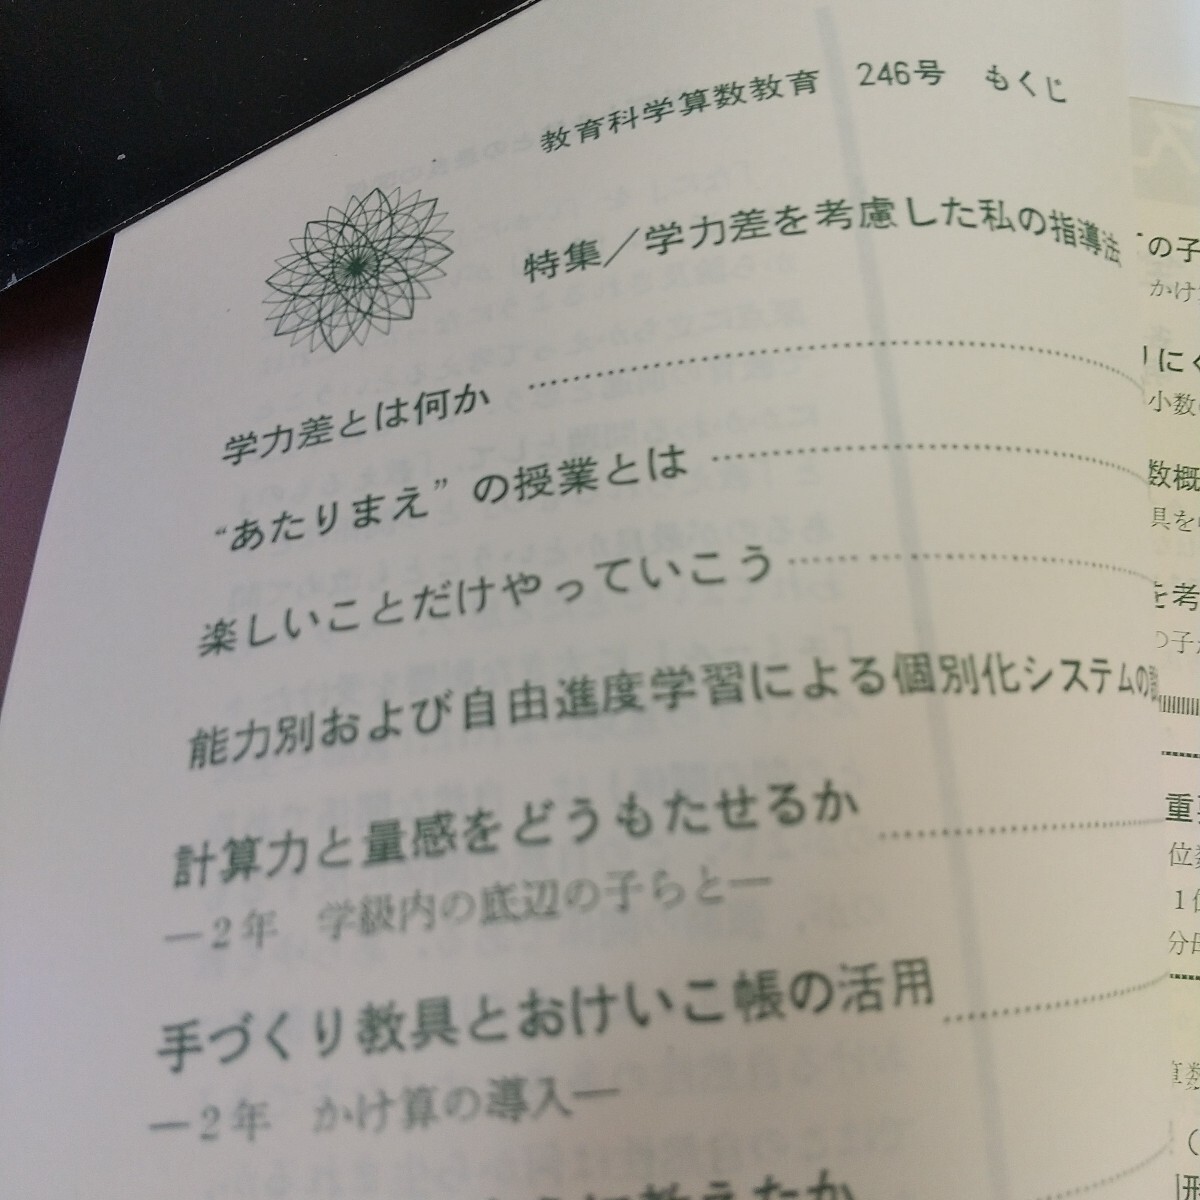 教育科学算数教育 246号 もくじ
特集/学力差を考慮した私の指導法
学力差とは何か
“あたりまえ”の授業とは
楽しいことだけやっていこう
能力別および自由進度学習による個別化システムの
計算力と量感をどうもたせるか
—2年 学級内の底辺の子らと—
手づくり教具とおけいこ帳の活用
—2年 かけ算の導入—
に教えたか
の子
かけ
にく
小数
数概
具を
を考
の子
重
位数
1位
分母
算数